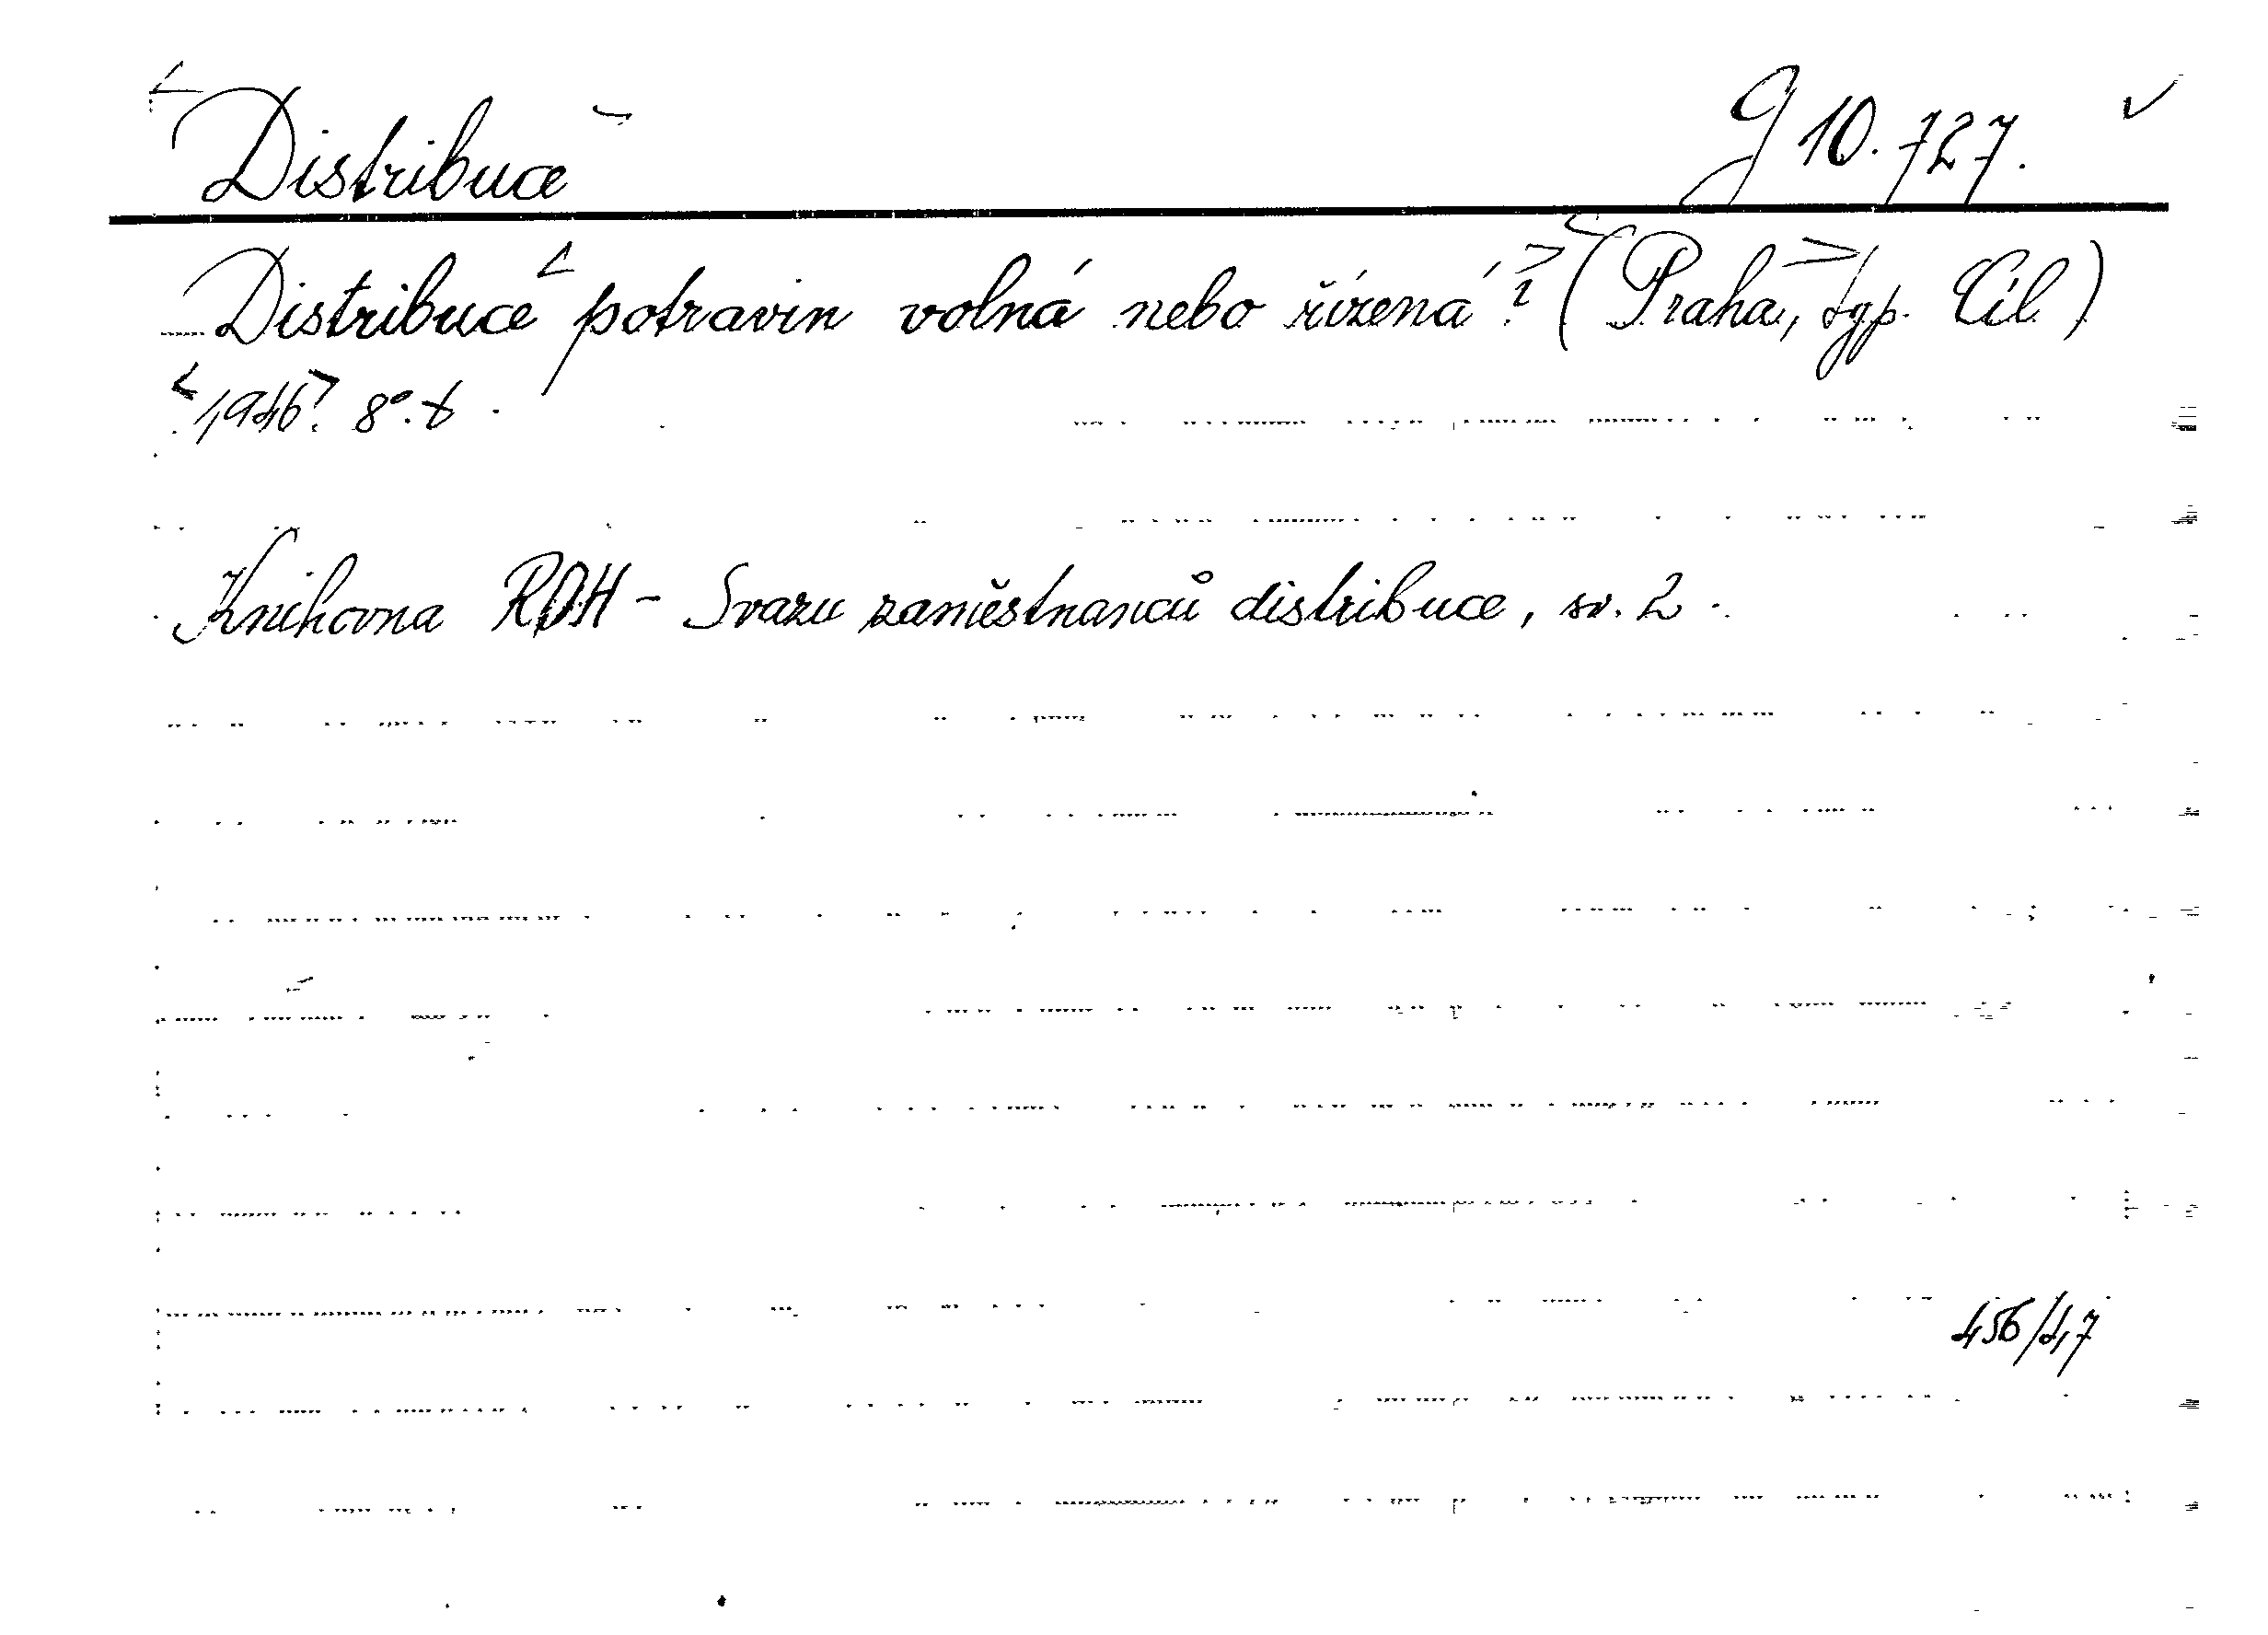 Distribuce G 10.727.
Distribuce potravin volná nebo řízená? (Praha, typ. Cíl)
1946. 8°. t.
Knihovna ROH - Svazu zaměstnanců distribuce, sv. 2.
456/47